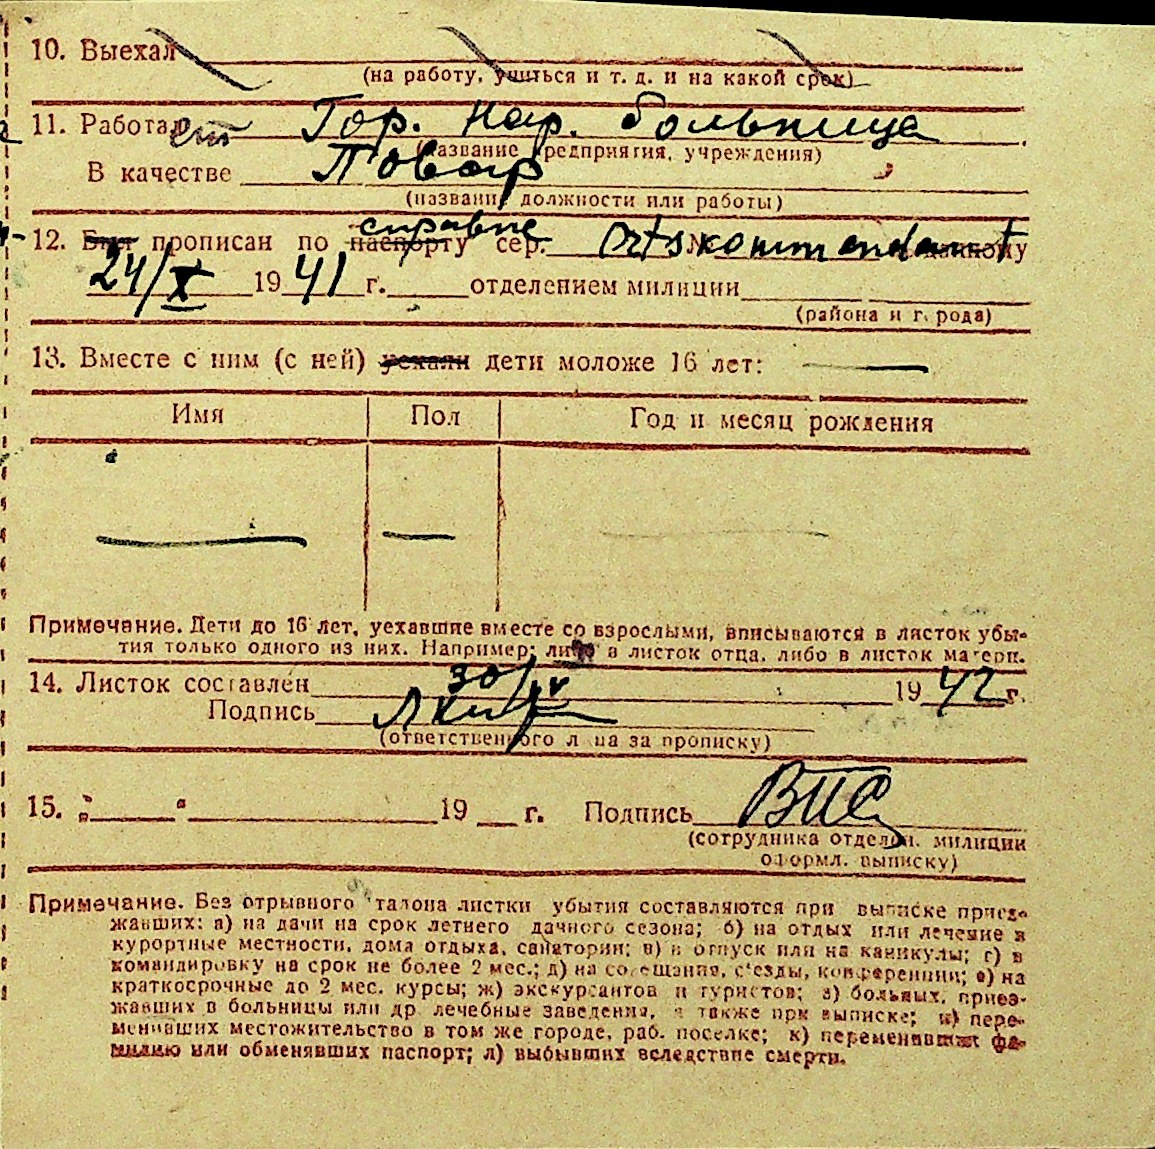 10. Выехал
(на работу, учиться и т. д. и на какой срок)
11. Работает Гор. Нар. больница
(название предприятия, учреждения)
В качестве Повар
(название должности или работы)
справке
12. Был прописан по паспорту сер. № Ortskommendant выданному
24/X 1941 г. отделением милиции
(района и города)
13. Вместе с ним (с ней) уехали дети моложе 16 лет: —
Имя Пол Год и месяц рождения
— — —
Примечание. Дети до 16 лет, уехавшие вместе со взрослыми, вписываются в листок убы-
тия только одного из них. Например: либо в листок отца, либо в листок матери.
14. Листок составлен 30/IV 1942 г.
Подпись
(ответственного лица за прописку)
15. „ “ 19 г. Подпись
(сотрудника отделен. милиции
оформл. выписку)
Примечание. Без отрывного талона листки убытия составляются при выписке приез-
жавших: а) на дачи на срок летнего дачного сезона; б) на отдых или лечение в
курортные местности, дома отдыха, санатории; в) в отпуск или на каникулы; г) в
командировку на срок не более 2 мес.; д) на совещания, съезды, конференции; е) на
краткосрочные до 2 мес. курсы; ж) экскурсантов и туристов; з) больных, приез-
жавших в больницы или др. лечебные заведения, а также при выписке; и) пере-
менивших местожительство в том же городе, раб. поселке; к) переменивших фа-
милию или обменявших паспорт; л) выбывших вследствие смерти.